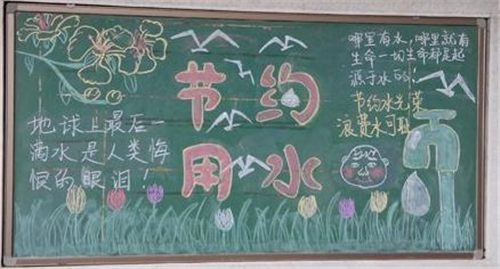 节约
用水
地球上最后一
滴水是人类悔
恨的眼泪！
哪里有水，哪里就有
生命一切生命都是起
源于水的！
节约水光荣
浪費水可耻